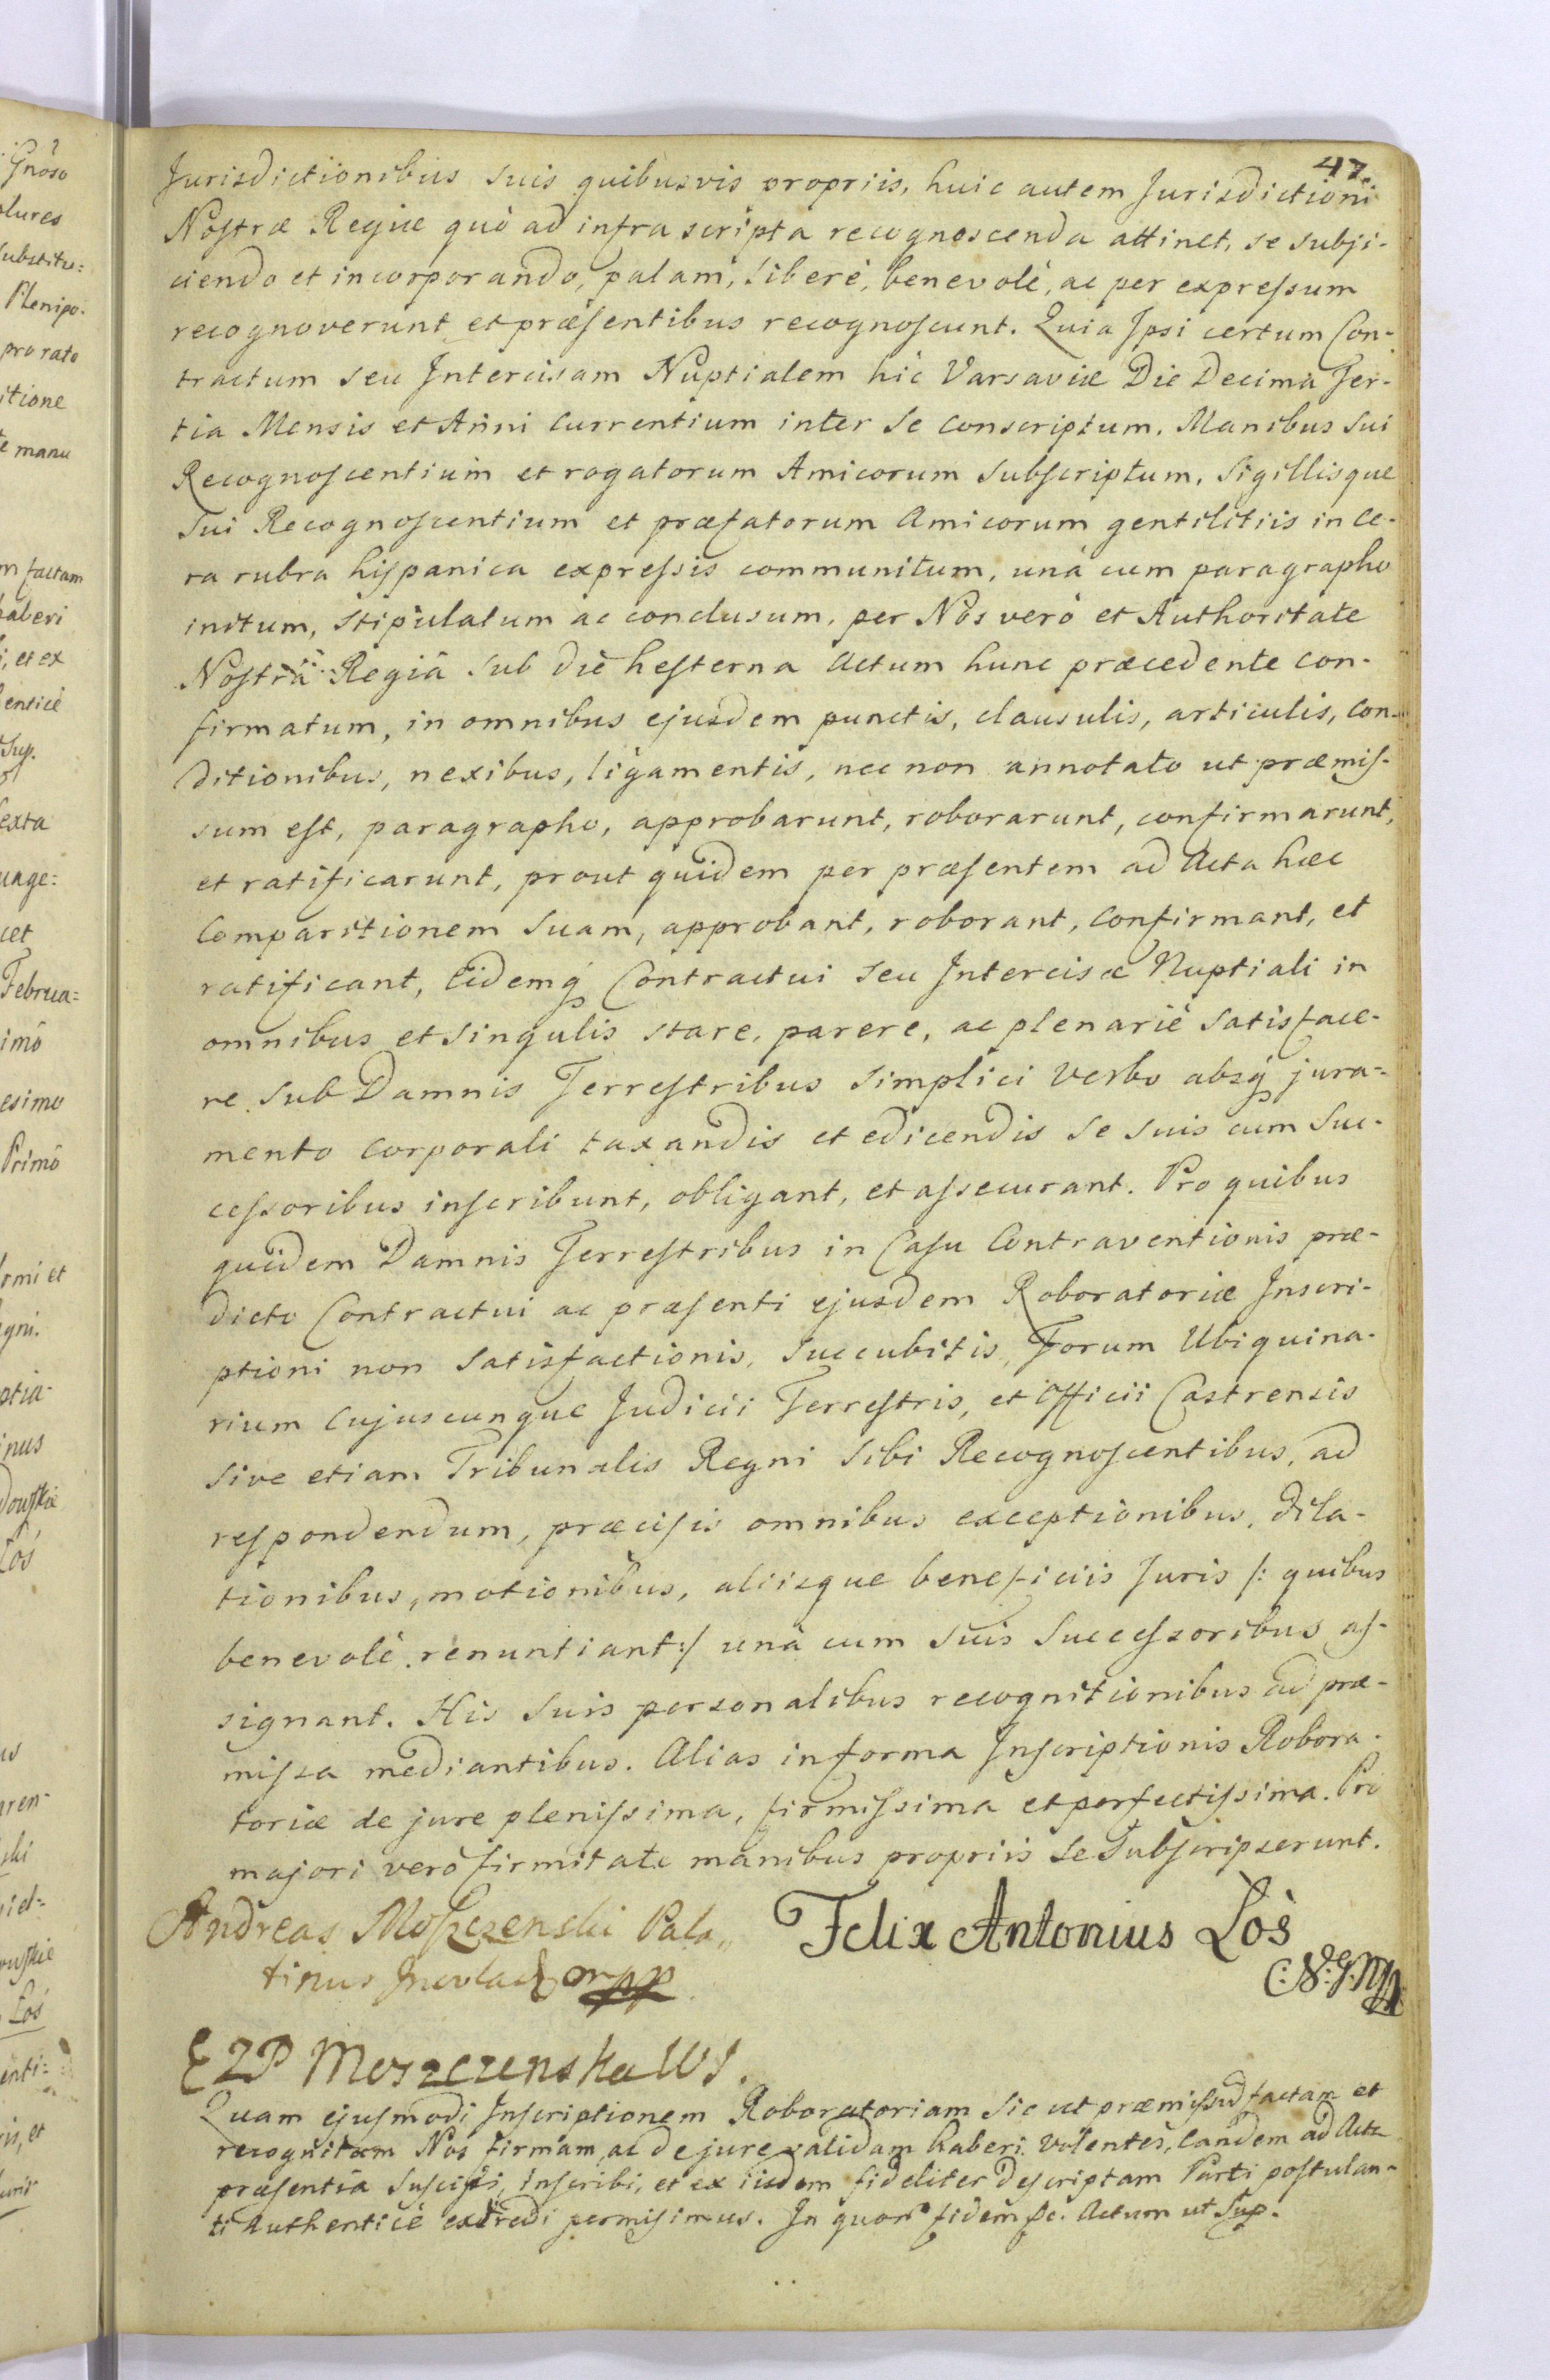 47.
Jurisdictionibus suis quibusvis propriis, huic autem Jurisdictioni
Nostræ Regiæ quò ad infra scripta recognoscenda attinet, se subji-
ciendo et incorporando, palam, liberè, benevolè, ac per expressum
recognoverunt et præsentibus recognoscunt. Quia Ipsi certum Con-
tractum seu Intercisam Nuptialem hìc Varsaviæ Die Decima Ter-
tia Mensis et Anni currentium inter se conscriptum, Manibus sui
Recognoscentium et rogatorum Amicorum subscriptum, Sigillisque
sui Recognoscentium et præfatorum Amicorum gentilitiis in ce-
ra rubra hispanica expressis communitum, unà cum paragrapho
initum, stipulatum ac conclusum, per Nos verò et Authoritate
Nostrâ Regiâ sub die hesterna Actum hunc præcedente con-
firmatum, in omnibus ejusdem punctis, clausulis, articulis, con-
ditionibus, nexibus, ligamentis, nec non annotato ut præmis-
sum est, paragrapho, approbarunt, roborarunt, confirmarunt,
et ratificarunt, prout quidem per præsentem ad Acta hæc
Comparitionem suam, approbant, roborant, confirmant, et
ratificant, Eidemq Contractui seu Intercisæ Nuptiali in
omnibus et singulis stare, parere, ac plenariè satisface-
re sub Damnis Terrestribus simplici verbo absq jura=
mento corporali taxandis et edicendis se suis cum suc-
cessoribus inscribunt, obligant, et assecurant. Pro quibus
quidem Damnis Terrestribus in Casu Contraventionis præ-
dicto Contractui ac præsenti ejusdem Roboratoriæ Inscri-
ptioni non satisfactionis, succubitis, Forum Ubiquina-
rium cujuscunque Judicii Terrestris, et Officii Castrensis
sive etiam Tribunalis Regni sibi Recognoscentibus, ad
respondendum, præcisis omnibus exceptionibus, dila-
tionibus, motionibus, aliisque beneficiis Juris /: quibus
benevolè renuntiant :/ unà cum suis Successoribus as-
signant. His suis personalibus recognitionibus ad præ-
missa mediantibus. Alias in forma Inscriptionis Robora-
toriæ de jure plenissima, firmissima et perfectissima. Pro
majori verò firmitate manibus propriis se subscripserunt.
Andreas Moszczenski Pala„
tinus Inowlad mpp
Felix Antonius Łoś
EZP Moszczenska WI.
Quam ejusmodi Inscriptionem Roboratoriam sic ut præmissum factam et
recognitam Nos firmam ac de jure validam haberi volentes, eandem ad Acta
præsentia suscipi, inscribi, et ex iisdem fideliter descriptam Parti postulan-
ti Authenticè extradi permisimus. In quorum fidem &c. Actum ut sup.